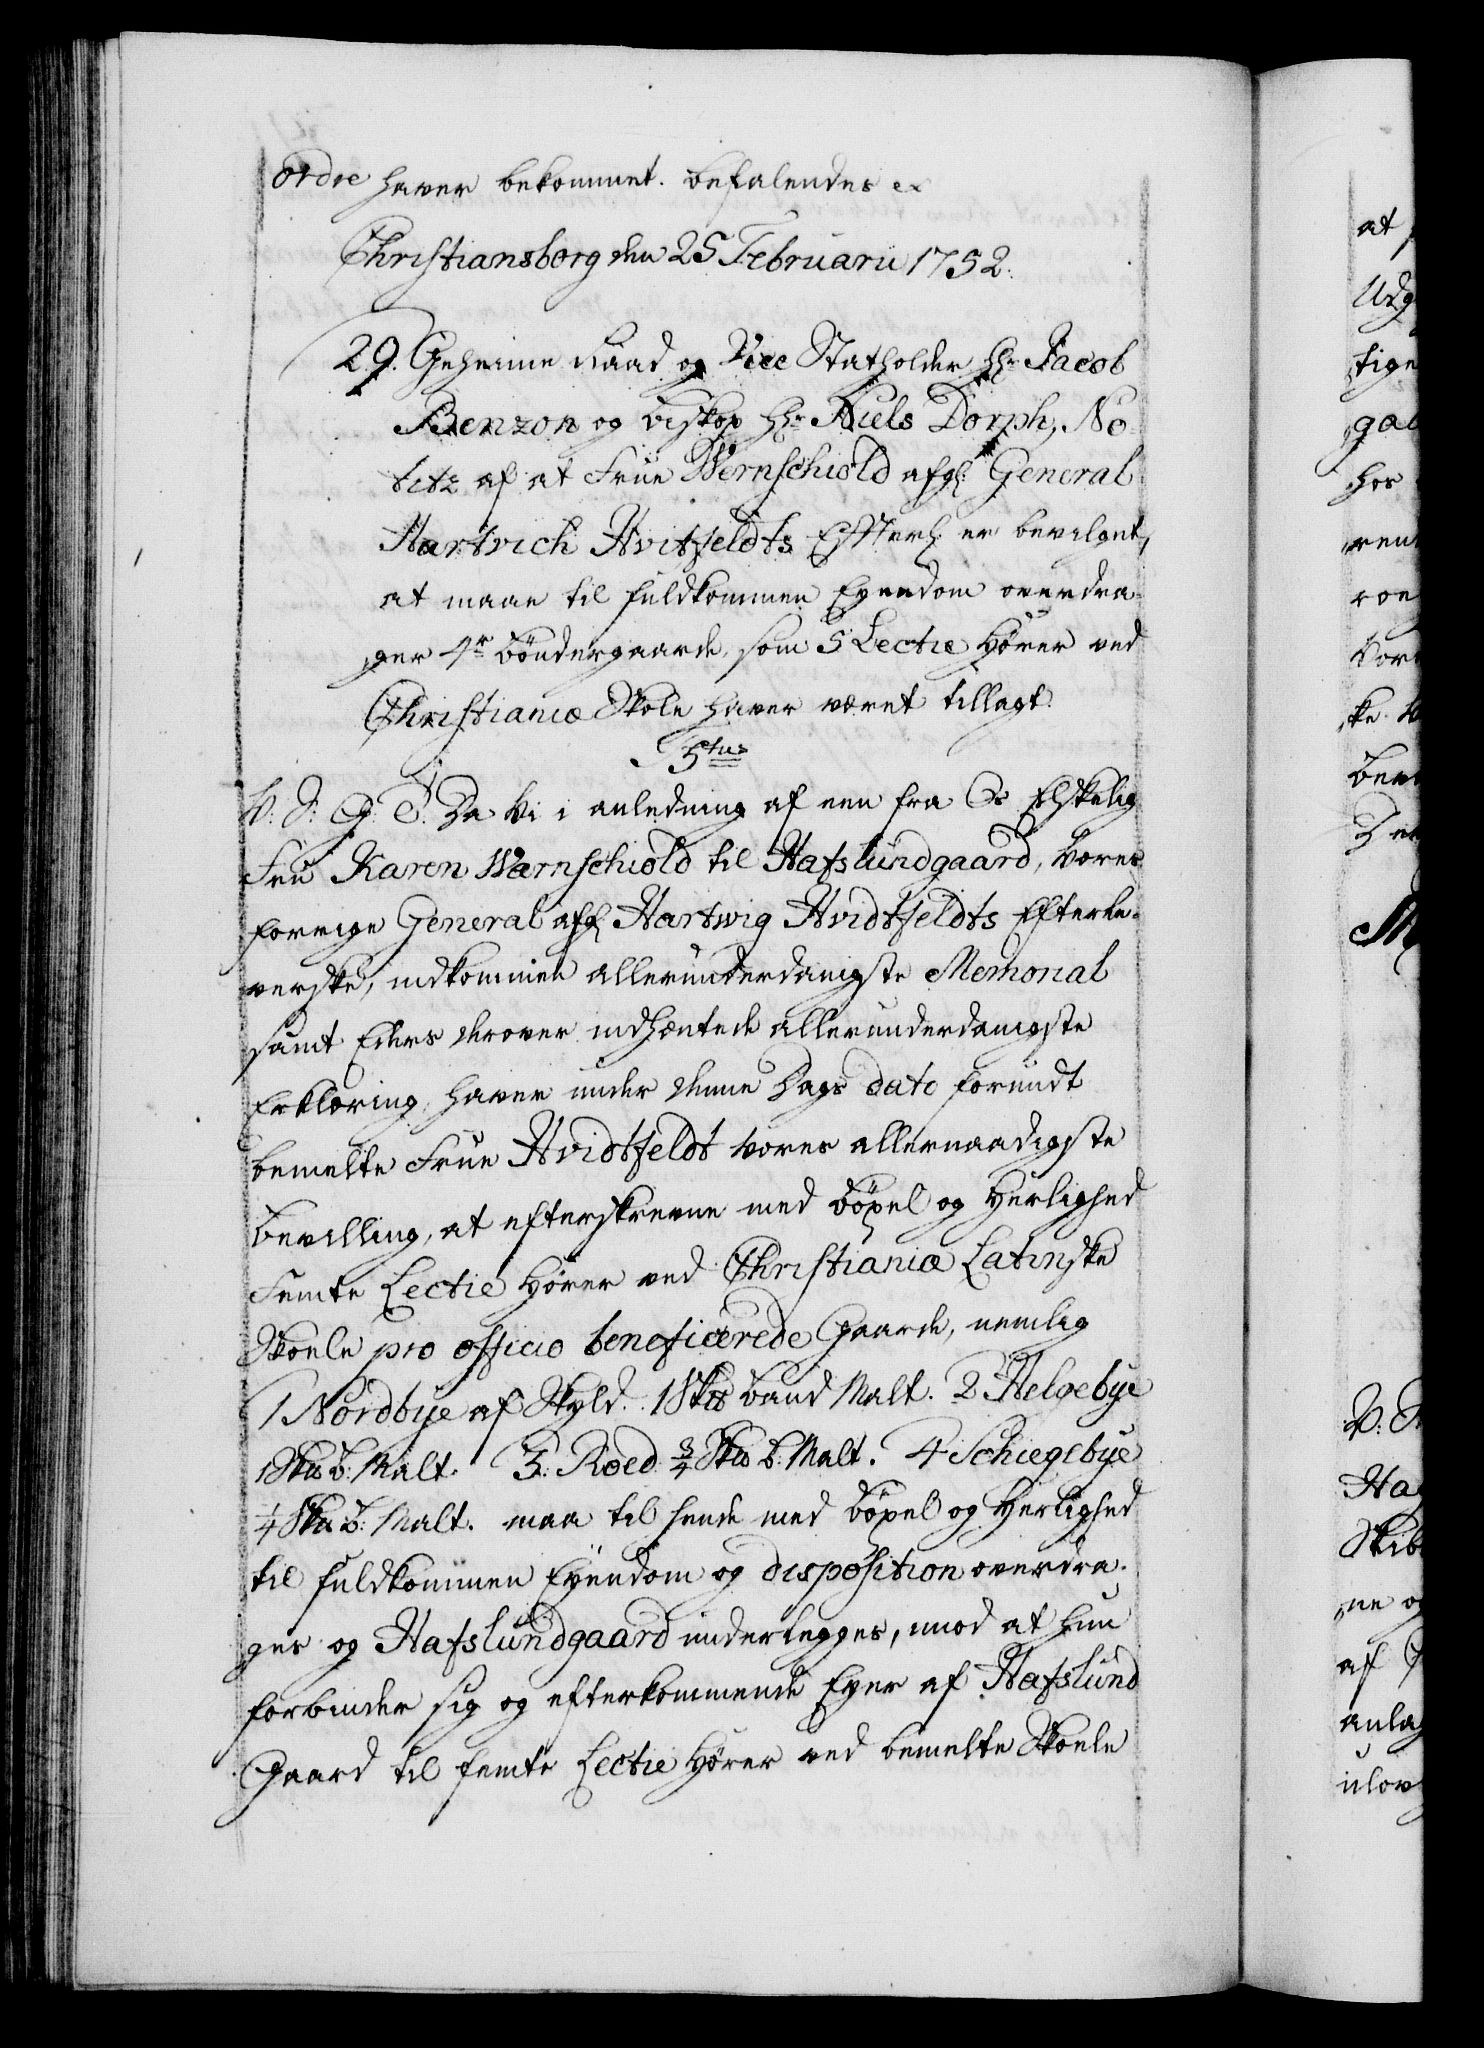 ordre haver bekommet. Befalendes etc
Christiansborg den 25 Februarii 1752.
29. Geheime Raad og Vice Statholder Hr Jacob
Benzon og Biskop Hr Niels Dorph, No-
titz af at Frue Wernschiold afg: General
Hartvich Hvitzfeldts Effterl: er bevilget,
at maae til fuldkommen Eyendom overdra-
ges 4re Bøndergaarde, som 5 Lectie Hører ved
Christiania Skole haver været tillagt.
V. S. G. T. Da Vi i anledning af een fra Os Elskelig
Frue Karen Warnschiold til Hafslundgaard, Vores
forrige General afg: Hartwig Hvidtfeldts Efterle-
verske, indkommen allerunderdanigste Memorial
samt Eders derover indhæntede allerunderdanigste
Erklæring, haver under denne Dags dato forundt
bemelte Frue Hvidtfeldt Vores allernaadigste
Bevilling, at efterskrevne med Bøxel og Herlighed
Femte Lectie Hører ved Christiania Latinske
Skoele pro officio beneficerede Gaarde, nemlig
1 Nordbye af Skyld. 1 Skb bund Malt. 2 Helgebye
1 Skb b: Malt. 3. Roed 3/4 Skb b: Malt. 4 Schiegebye
1/4 Skb b: Malt. maa til hende med Bøxel og Herlighed
til fuldkommen Eyendom og disposition overdra-
ges og Hafslundgaard underlegges, imod at hun
forbinder sig og efterkommende Eyer af Hafslund
Gaard til femte Lectie Hører ved bemelte Skoele